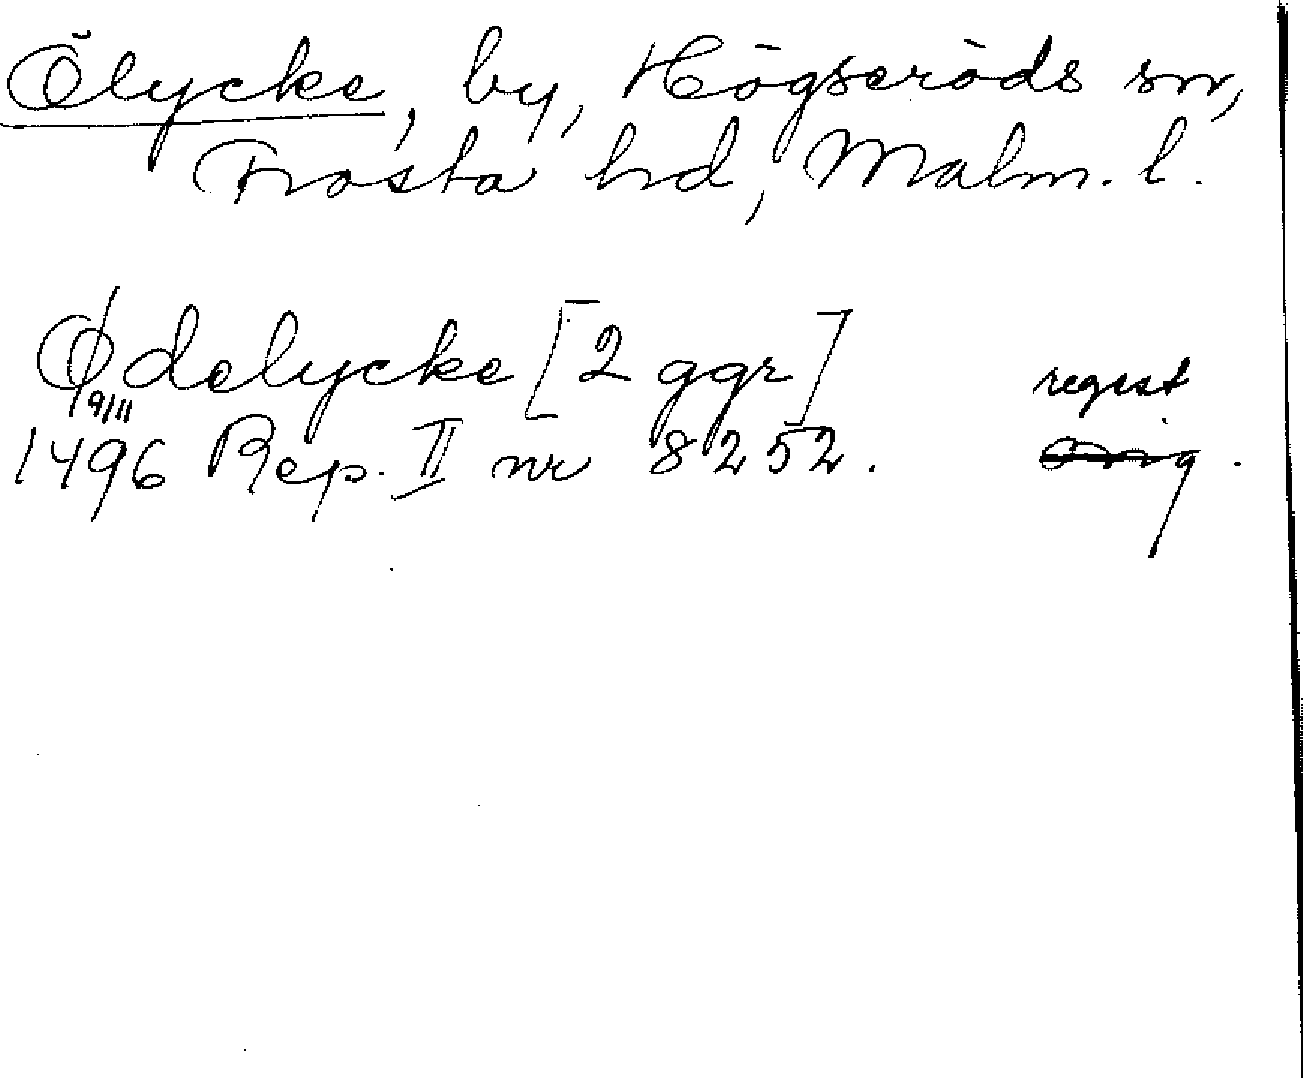 Ölycke, by, Högseröds sn,
Frosta hd, Malm. l.
Ødelycke [2 ggr]
regist
9/11
1496 Rep. II nr 8252.